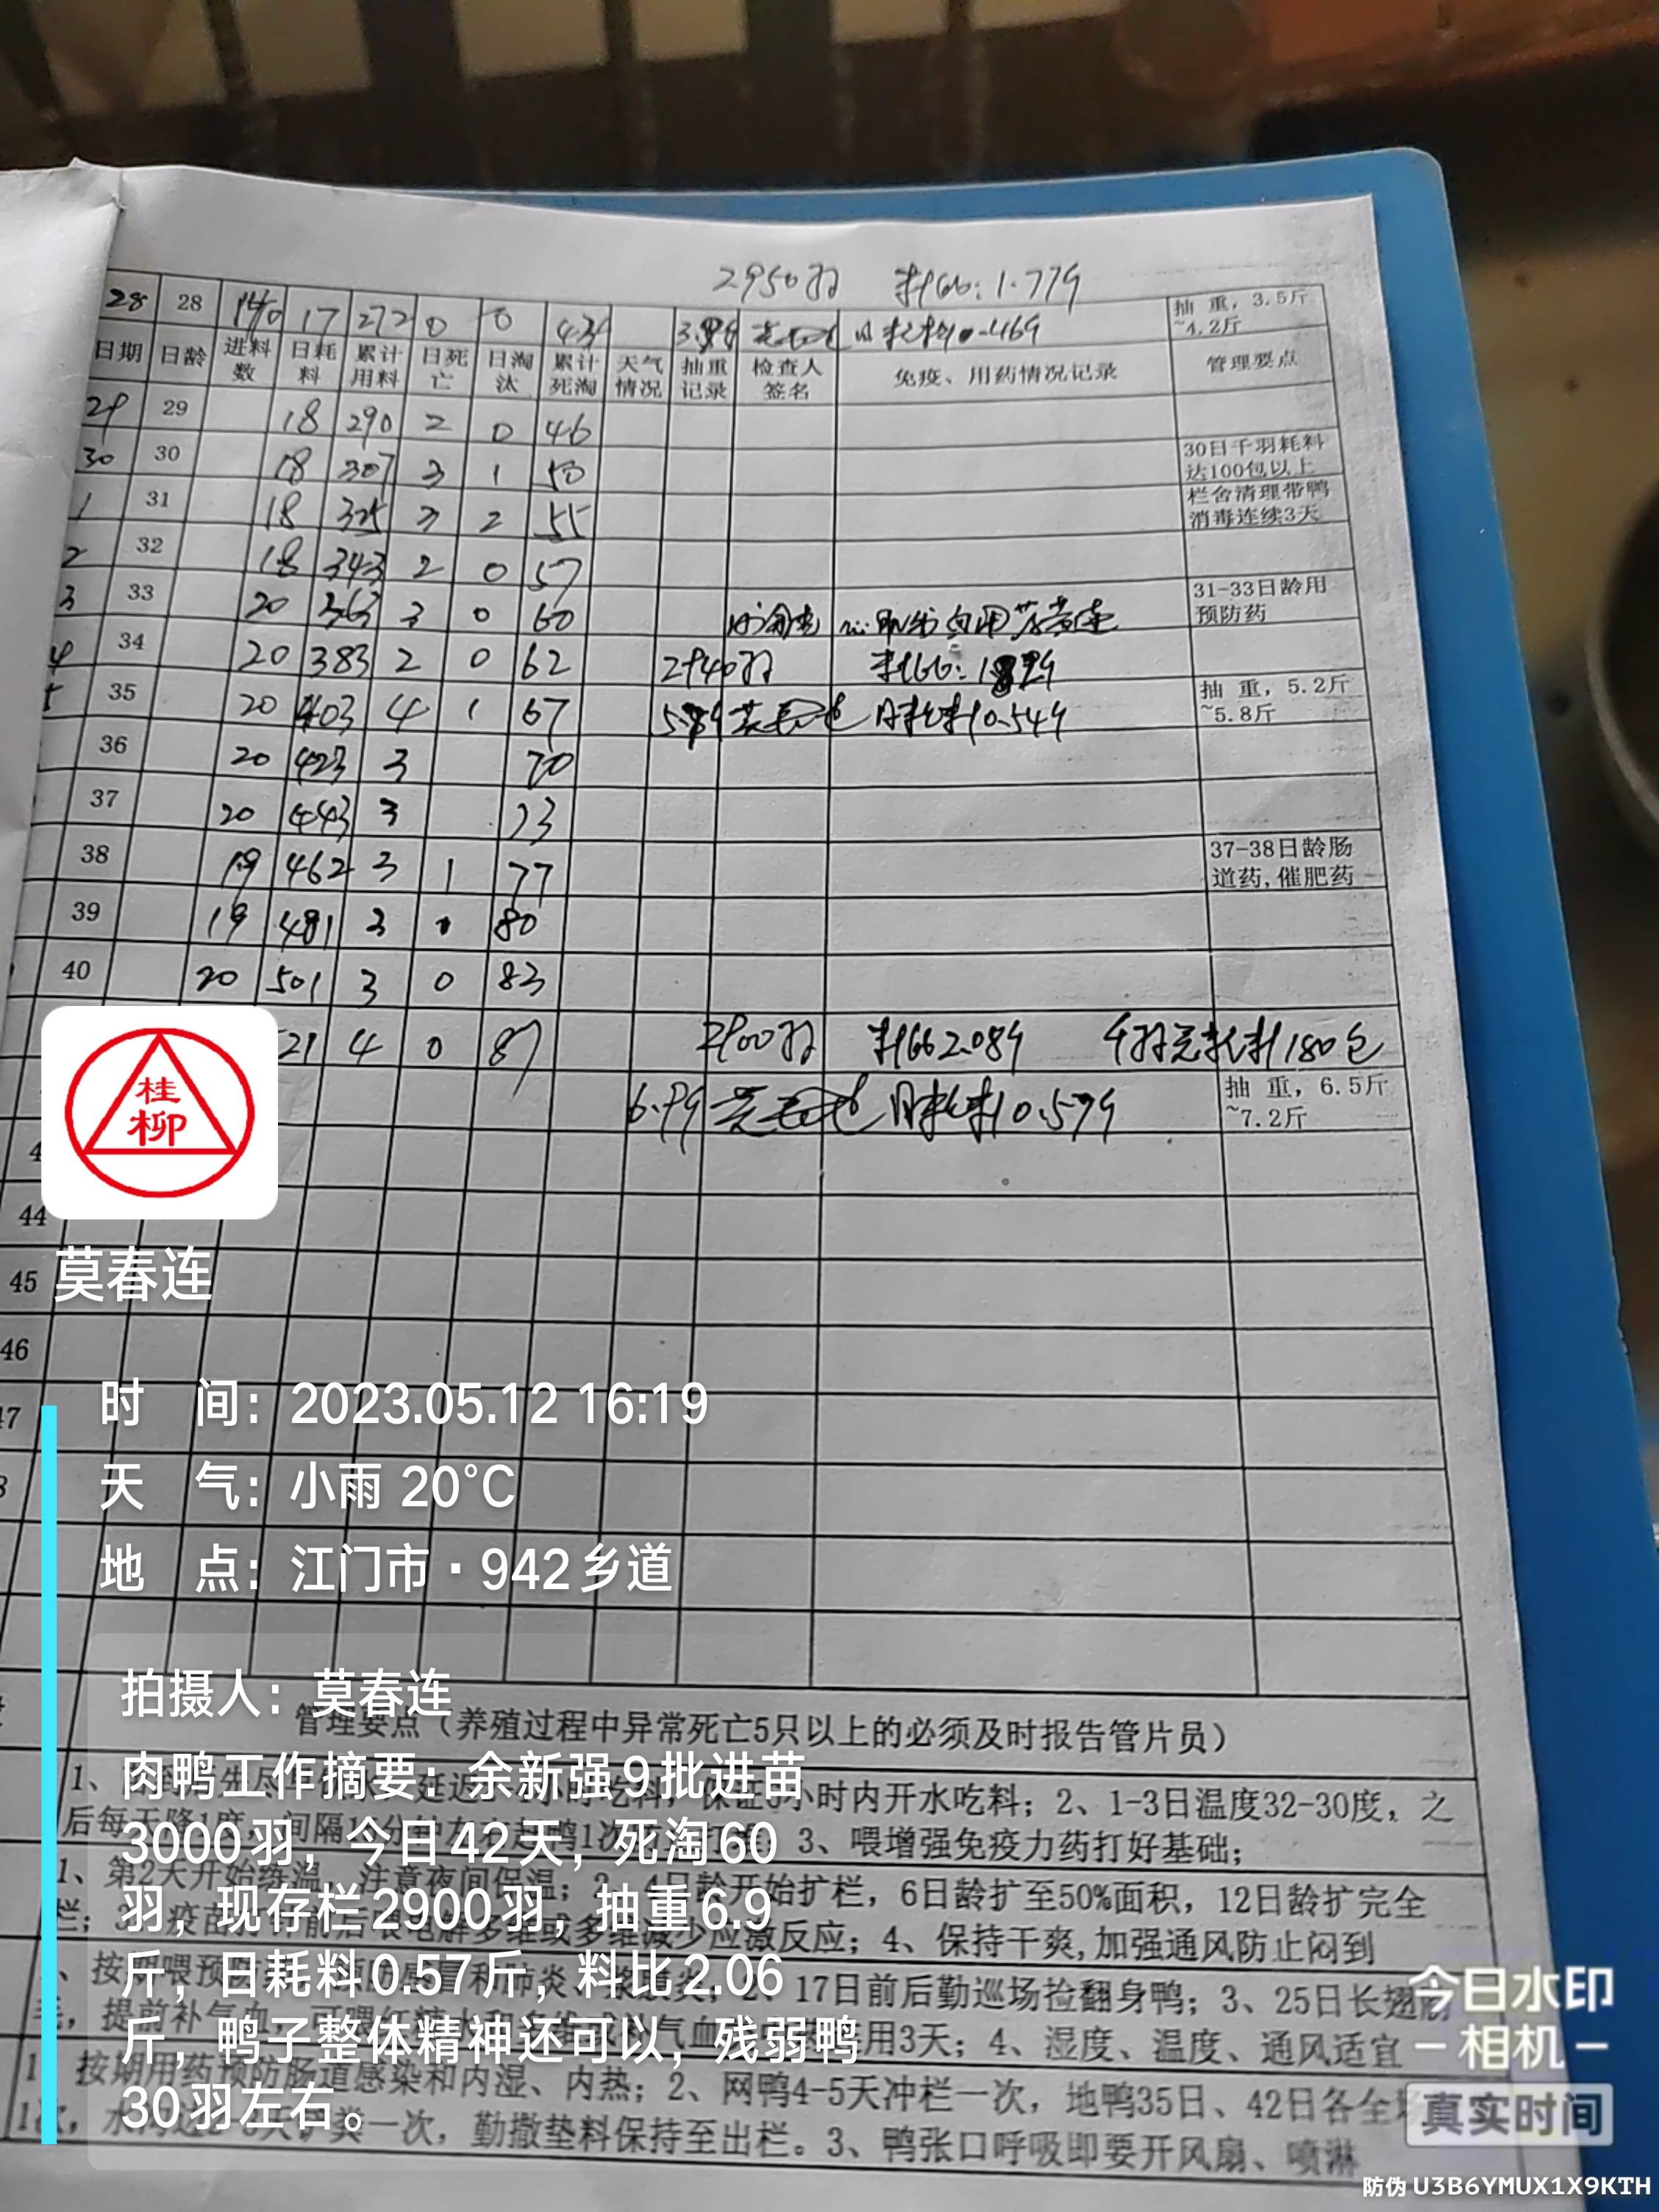 2950羽 料比:1.77斤
28 28 140 17 272 0 0 43 抽 重，3.5斤
~4.2斤
日期 日龄 进料数 日耗料 累计用料 日死亡 日淘汰 累计死淘 天气情况 抽重记录 检查人签名 免疫、用药情况记录 管理要点
29 29 18 290 2 0 46
30 30 18 307 3 1 50 30日千羽耗料
达100包以上
1 31 18 325 3 2 55 栏舍清理带鸭
消毒连续3天
2 32 18 343 2 0 57
3 33 20 363 3 0 60 31-33日龄用
预防药
4 34 20 383 2 0 62 2940羽 料比:
5 35 20 403 4 1 67 日耗料0.54斤 抽 重，5.2斤
~5.8斤
36 20 423 3 70
37 20 443 3 73
38 19 462 3 1 77 37-38日龄肠
道药,催肥药
39 19 481 3 0 80
40 20 501 3 0 83
21 4 0 87 2900羽 料比2.08斤 千羽总耗料180包
6.9斤 日耗料0.57斤 抽 重，6.5斤
~7.2斤
桂
柳
44
莫春连
45
46
时 间：2023.05.12 16:19
天 气：小雨 20°C
地 点：江门市·942乡道
拍摄人：莫春连
管理要点（养殖过程中异常死亡5只以上的必须及时报告管片员）
肉鸭工作摘要：余新强9批进苗
3000羽，今日42天，死淘60
羽，现存栏2900羽，抽重6.9
斤，日耗料0.57斤，料比2.06
斤，鸭子整体精神还可以，残弱鸭
30羽左右。
小时内开水吃料；2、1-3日温度32-30度，之
后每天降1度，间隔 3、喂增强免疫力药打好基础；
1、第2天开始练温，注意夜间保温；2、4日龄开始扩栏，6日龄扩至50%面积，12日龄扩完全
栏；3、疫苗 减少应激反应；4、保持干爽,加强通风防止闷到
17日前后勤巡场捡翻身鸭；3、25日长翅
用3天；4、湿度、温度、通风适宜
按期用药预防肠道感染和内湿、内热；2、网鸭4-5天冲栏一次，地鸭35日、42日各全
粪一次，勤撒垫料保持至出栏。3、鸭张口呼吸即要开风扇、喷淋
今日水印
相机
真实时间
防伪 U3B6YMUX1X9KTH